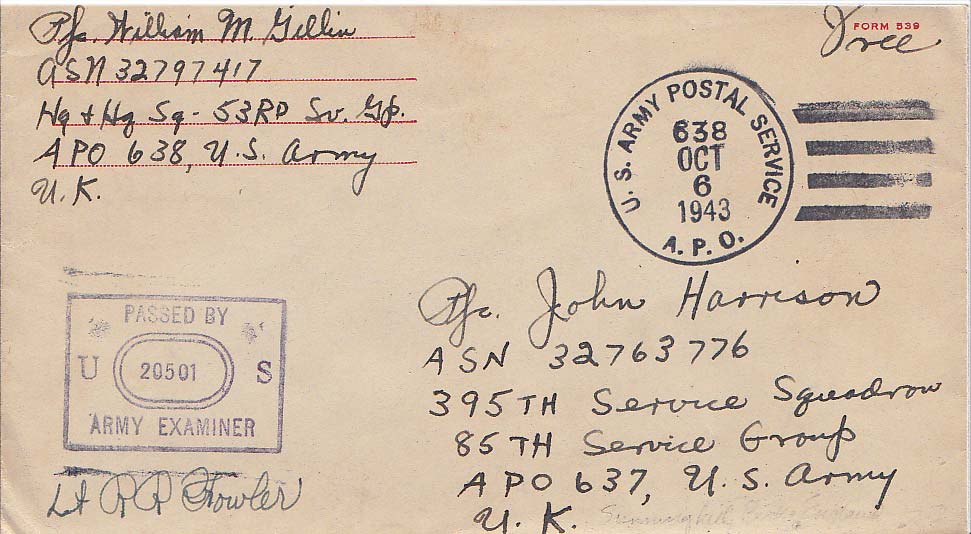 Pfc. William M. Gillin
ASN 32797417
Hq + Hq Sq - 53RD Sv. Gp.
APO 638, U.S. Army
U.K.
FORM 539
Free
U. S. ARMY POSTAL SERVICE
638
OCT
6
1943
A. P. O.
PASSED BY
U 20501 S
ARMY EXAMINER
Lt R R Fowler
Pfc. John Harrison
ASN 32763776
395TH Service Squadron
85TH Service Group
APO 637, U. S. Army
U. K.